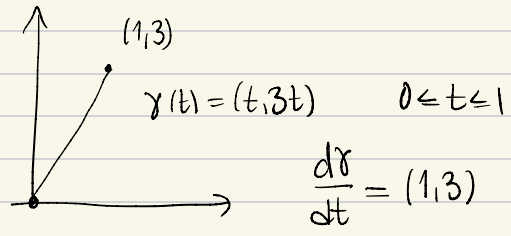 (1,3)
γ(t) = (t,3t) 0 ≤ t ≤ 1
dγ/dt = (1,3)